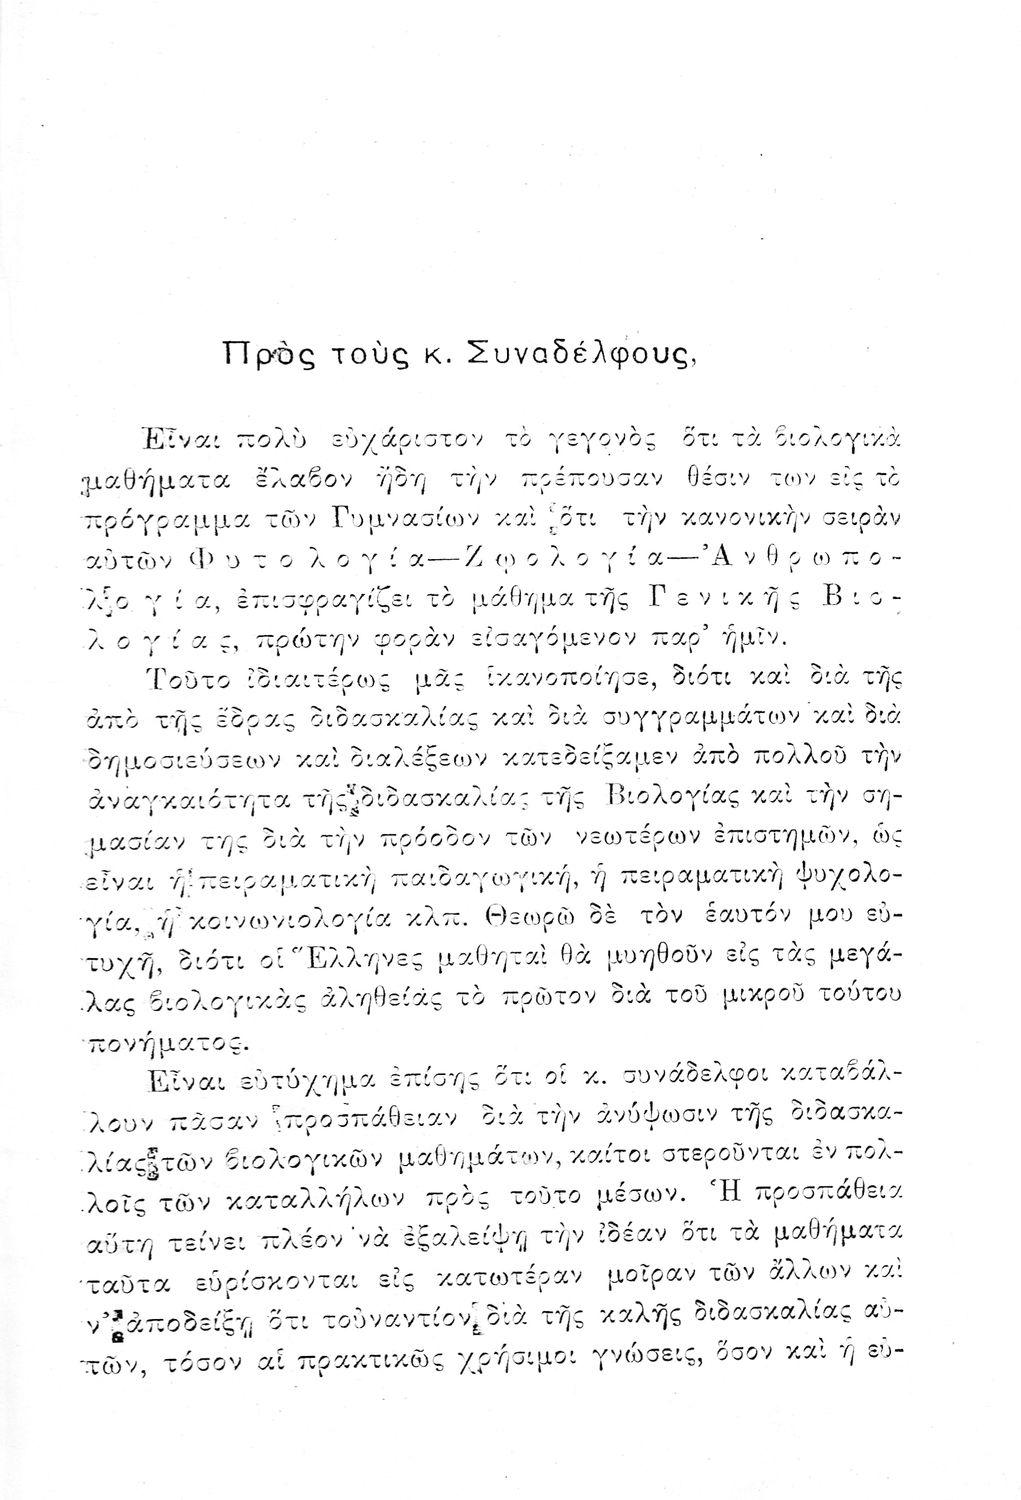 Πρὸς τοὺς κ. Συναδέλφους,
Εἶναι πολὺ εὐχάριστον τὸ γεγονὸς ὅτι τὰ βιολογικὰ
μαθήματα ἔλαβον ἤδη τὴν πρέπουσαν θέσιν των εἰς τὸ
πρόγραμμα τῶν Γυμνασίων καὶ ὅτι τὴν κανονικὴν σειρὰν
αὐτῶν Φυτολογία—Ζῳολογία—Ἀνθρωπο-
λογία, ἐπισφραγίζει τὸ μάθημα τῆς Γενικῆς Βιο-
λογίας, πρώτην φορὰν εἰσαγόμενον παρ’ ἡμῖν.
Τοῦτο ἰδιαιτέρως μᾶς ἱκανοποίησε, διότι καὶ διὰ τῆς
ἀπὸ τῆς ἕδρας διδασκαλίας καὶ διὰ συγγραμμάτων καὶ διὰ
δημοσιεύσεων καὶ διαλέξεων κατεδείξαμεν ἀπὸ πολλοῦ τὴν
ἀναγκαιότητα τῆς διδασκαλίας τῆς Βιολογίας καὶ τὴν ση-
μασίαν της διὰ τὴν πρόοδον τῶν νεωτέρων ἐπιστημῶν, ὡς
εἶναι ἡ πειραματικὴ παιδαγωγική, ἡ πειραματικὴ ψυχολο-
γία, ἡ κοινωνιολογία κλπ. Θεωρῶ δὲ τὸν ἑαυτόν μου εὐ-
τυχῆ, διότι οἱ Ἕλληνες μαθηταὶ θὰ μυηθοῦν εἰς τὰς μεγά-
λας βιολογικὰς ἀληθείας τὸ πρῶτον διὰ τοῦ μικροῦ τούτου
πονήματος.
Εἶναι εὐτύχημα ἐπίσης ὅτι οἱ κ. συνάδελφοι καταβάλ-
λουν πᾶσαν προσπάθειαν διὰ τὴν ἀνύψωσιν τῆς διδασκα-
λίας τῶν βιολογικῶν μαθημάτων, καίτοι στεροῦνται ἐν πολ-
λοῖς τῶν καταλλήλων πρὸς τοῦτο μέσων. Ἡ προσπάθεια
αὕτη τείνει πλέον νὰ ἐξαλείψῃ τὴν ἰδέαν ὅτι τὰ μαθήματα
ταῦτα εὑρίσκονται εἰς κατωτέραν μοῖραν τῶν ἄλλων καὶ
ν’ ἀποδείξῃ ὅτι τοὐναντίον διὰ τῆς καλῆς διδασκαλίας αὐ-
τῶν, τόσον αἱ πρακτικῶς χρήσιμοι γνώσεις, ὅσον καὶ ἡ εὐ-